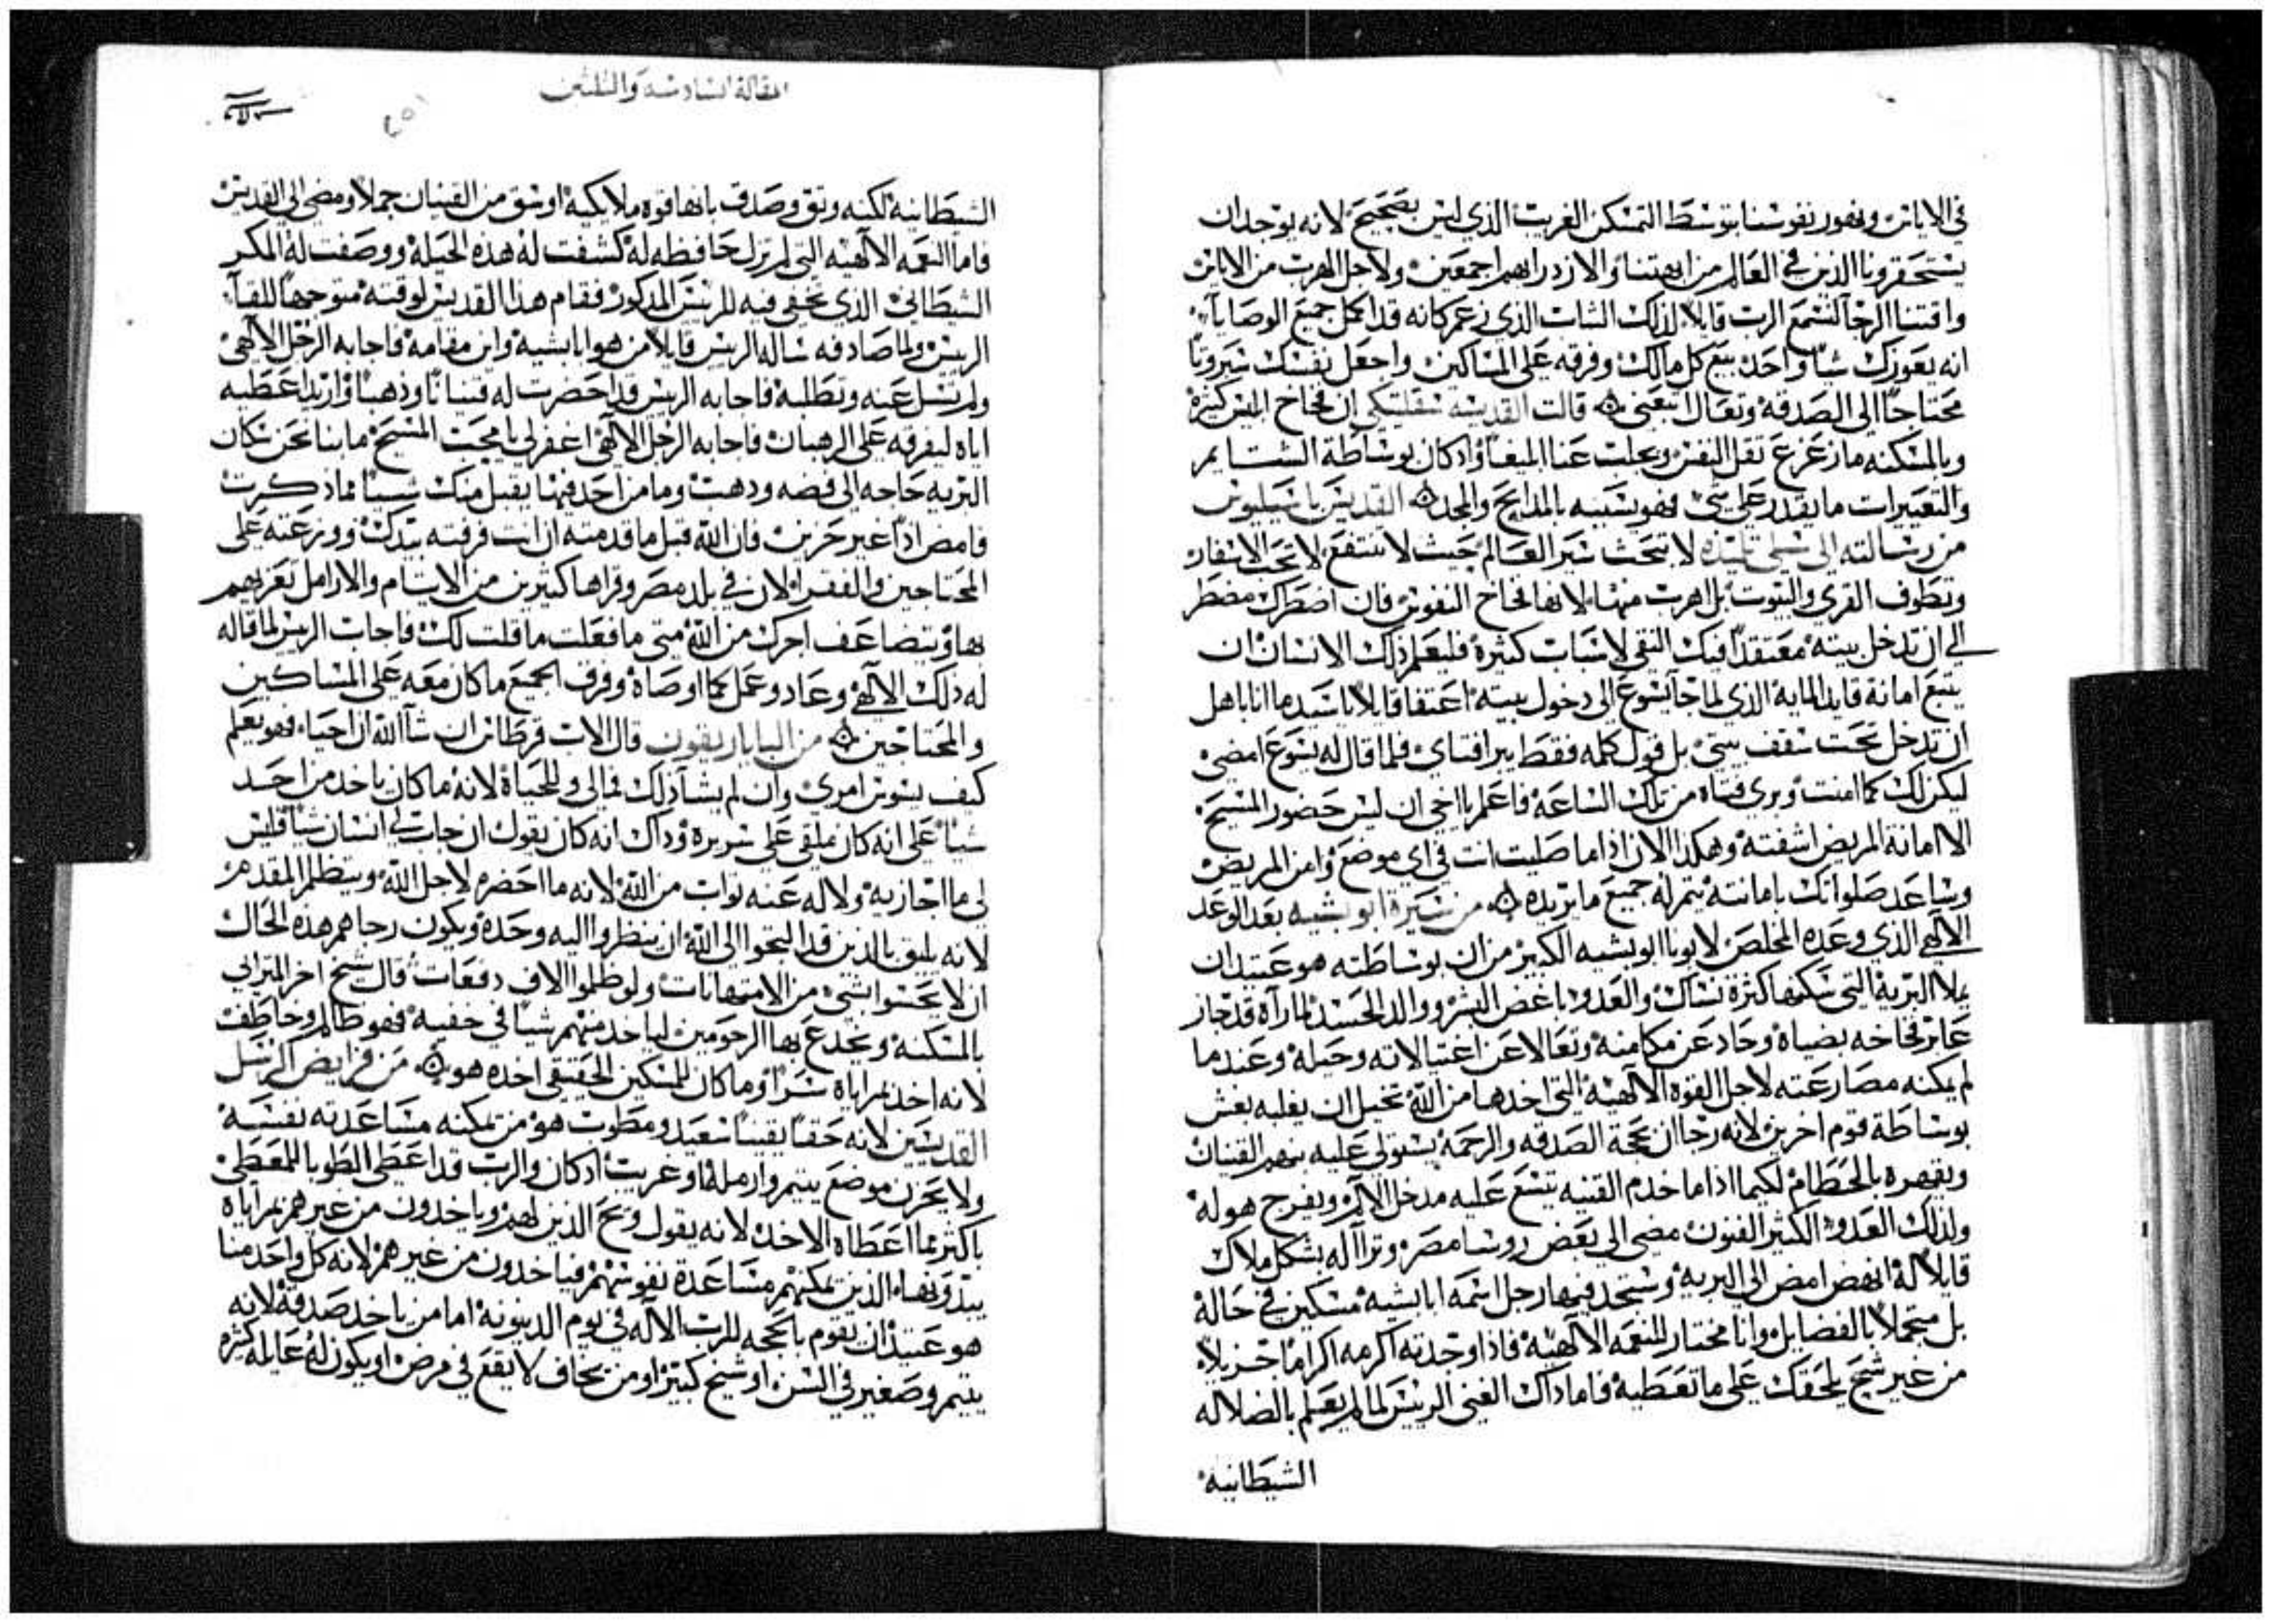 في الاياس ونفور نفوسنا بتوسط التمسكن الغريب الذي ليس بصحيح لانه يوجد ان
يستحقرونا الذين في العالم من ابهتنا والازدرا بهم اجمعين ولاجل الهرب من الاياس
واقتنا الرجا لنسمع الرب قايلا لذلك الشاب الذي زعم كانه قد اكمل جميع الوصايا
انه يعوزك شيا واحد بيع كل مالك وفرقه على المساكين واجعل نفسك سيرونا
محتاجا الى الصدقه وتعال اتبعني قالت القديسه سنقليتكي ان فخاخ ابليس كثيرة
وبالمسكنه ما زعزع نقل النفس ويجلب عنا المبغا واد كان بوساطة الشتايم
والتعييرات ما يقدر على شي فهو يسبيه بالمدايح والمجد القديس باسيليوس
من رسالته الى شيلي تلميذه لا تبحث شر العالم حيث لا تنتفع لا تحب الاسفار
وتطوف القري والبيوت بل اهرب منها لانها فخاخ النفوس فان اضطرك مضطر
الى ان تدخل بيته معتقدا فيك التقي لاسباب كثيرة فليعلم ذلك الانسان ان
يتبع امانة قايد الماية الذي لما جا يسوع الى دخول بيته اعتفا قايلا يا سيد ما انا باهل
ان تدخل تحت سقف بيتي بل قول كلمه فقط يبرا فتاي فلما قال له يسوع امضي
ليكن لك كما امنت وبري فتاه من تلك الساعة فاعلم يا اخي ان ليس حضور المسيح
الا امانة المريض اشفته وهكذا الان اذا ما صليت انت في اي موضع وامن المريض
وساعد صلواتك بامانته يتم له جميع ما يريده من سيرة ابو بشيه بعد الوعد
الالهي الذي وعده المخلص لابونا ابو بشيه الكبير من ان بوساطته هو عتيد ان
يملا البرية التي سكنها كثرة نساك والعدو باغض البشر ووالد الحسد لما رآه قد جاز
عابر فخاخه بضياه وحاد عن مكامنه وتعالا عن اغتيالاته وحيله وعند ما
لم يمكنه مصارعته لاجل القوه الالهيه التي اخدها من الله تخيل ان يغلبه بغش
بوساطة قوم اخرين لانه رجا ان بحجة الصدقه والرحمة يستولي عليه بنهم القنيان
ويقهره بالحطام لكيما اذا ما خدم القنيه يتسع عليه مدخل الالام ويفرح هو له
ولذلك العدو الكثير الفنون مضى الى بعض روسا مصر وترا اله بشكل ملاك
قايلا له انهض امض الى البريه وستجد فيها رجل اسمه ابا بشيه مسكين في حالة
بل متجملا بالفضايل وانا مختار للنعمه الالهيه فاذا وجدته اكرمه اكراما جزيلا
من غير شح يلحقك على ما تعطيه فاما داك الغني الريس لما لم يعلم بالضلاله
الشيطانيه
المقالة السادسه والثلثين
الشيطانيه لكنه وثق وصدق بانها قوه ملايكيه اوسق من القنيان جملا ومضى الى القديس
فاما النعمه الالهيه التي لم تزل حافظه له كشفت له هذه الحيلة ووصفت له المكر
الشيطاني الذي تخفى فيه للريس المذكور فقام هذا القديس لوقته متوجها للقآ
الريس ولما صادفه ساله الريس قايلا من هو ابا بشيه واين مقامه فاجابه الرجل الالهي
ولم تسل عنه وتطلبه فاجابه الريس قد احضرت له قنيانا وذهبا واريد اعطيه
اياه ليفرقه على الرهبان فاجابه الرجل الالهي اغفر لي يا محب المسيح ما بنا نحن سكان
البريه حاجه الى فضه ودهب وما من احد فينا يقبل منك شييا مما ذكرت
فامض اذا غير حزين فان الله قبل ما قدمته ان انت فرقته بيدك ووزعته على
المحتاجين والفقراء لان في بلد مصر وقراها كثيرين من الايتام والارامل تعزيهم
بها ويتضاعف اجرك من الله متى ما فعلت ما قلت لك فاجاب الريس لما قاله
له ذلك الالهي وعاد وعمل كما اوصاه وفرق الجميع ما كان معه على المساكين
والمحتاجين من الباباريفون قال الاب قرطاس ان شا الله ان احيا فهو يعلم
كيف يسوس امري وان لم يشا ذلك فمالي وللحياة لانه ما كان ياخد من احد
شيا على انه كان ملقى على سريره وذاك انه كان يقول ان جاب لي انسان شيا فليس
لي ما اجازيه ولا له عنه ثواب من الله لانه ما احضره لاجل الله ويتظلم المقدم
لانه يليق بالذين قد التجوا الى الله ان ينظروا اليه وحده ويكون رجاهم هذه الحال
ان لا يحسوا بشي من الامتهانات ولو ظلموا الاف دفعات قال شيخ اخر المترابي
بالمسكنه ويخدع بها الرحومين لياخد منهم شيا في خفيه فهو ظالم وخاطف
لانه اخذ بمراياه شرا وما كان للمسكين الحقيقي اخده هو من فرايض الرسل
القديسين لانه حقا يقينا سعيد ومطوب هو من تمكنه مساعدته نفسه
ولا يحزن موضع يتيم وارملة او غريب اذ كان والرب قد اعطى الطوبا للمعطي
باكثر مما اعطاه الاخد لانه يقول ويح الذين لهم وياخدون من غيرهم بمراياه
الذين تمكنهم مساعدة نفوسهم فياخدون من غيرهم لانه كل واحد منا
هو عتيد ان يقوم بالحجه للرب الاله في يوم الدينونة اما من ياخد صدقة لانه
يتيم وصغير في السن او شيخ كبير او من يخاف لا يقع في مرض او يكون له عايله كثيره